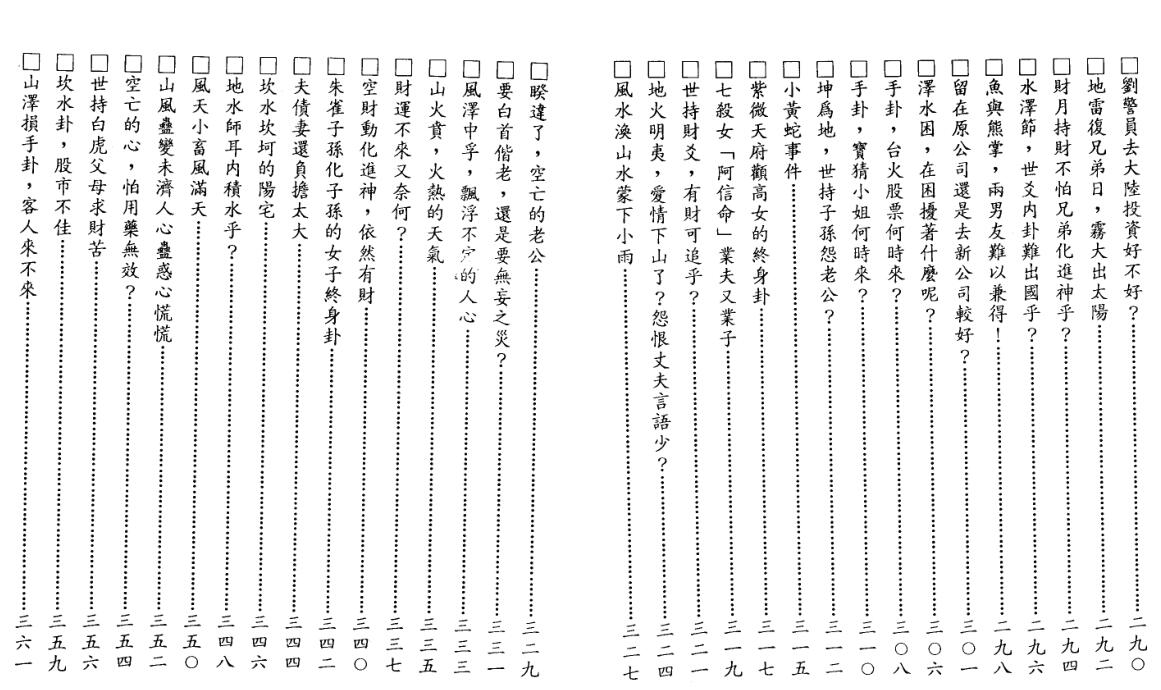 □劉警員去大陸投資好不好？……二九〇
□地雷復兄弟日，霧大出太陽……二九二
□財月持財不怕兄弟化進神乎？……二九四
□水澤節，世爻內卦難出國乎？……二九六
□魚與熊掌，兩男友難以兼得！……二九八
□留在原公司還是去新公司較好？……三〇一
□澤水困，在困擾著什麼呢？……三〇六
□手卦，台火股票何時來？……三〇八
□手卦，寶猜小姐何時來？……三一〇
□坤爲地，世持子孫怨老公？……三一二
□小黃蛇事件……三一五
□紫微天府顴高女的終身卦……三一七
□七殺女「阿信命」業夫又業子……三一九
□世持財爻，有財可追乎？……三二一
□地火明夷，愛情下山了？怨恨丈夫言語少？……三二四
□風水渙山水蒙下小雨……三二七
□睽違了，空亡的老公……三二九
□要白首偕老，還是要無妄之災？……三三一
□風澤中孚，飄浮不定的人心……三三三
□山火賁，火熱的天氣……三三五
□財運不來又奈何？……三三七
□空財動化進神，依然有財……三四〇
□朱雀子孫化子孫的女子終身卦……三四二
□夫債妻還負擔太大……三四四
□坎水坎坷的陽宅……三四六
□地水師耳內積水乎？……三四八
□風天小畜風滿天……三五〇
□山風蠱變未濟人心蠱惑心慌慌……三五二
□空亡的心，怕用藥無效？……三五四
□世持白虎父母求財苦……三五六
□坎水卦，股市不佳……三五九
□山澤損手卦，客人來不來……三六一